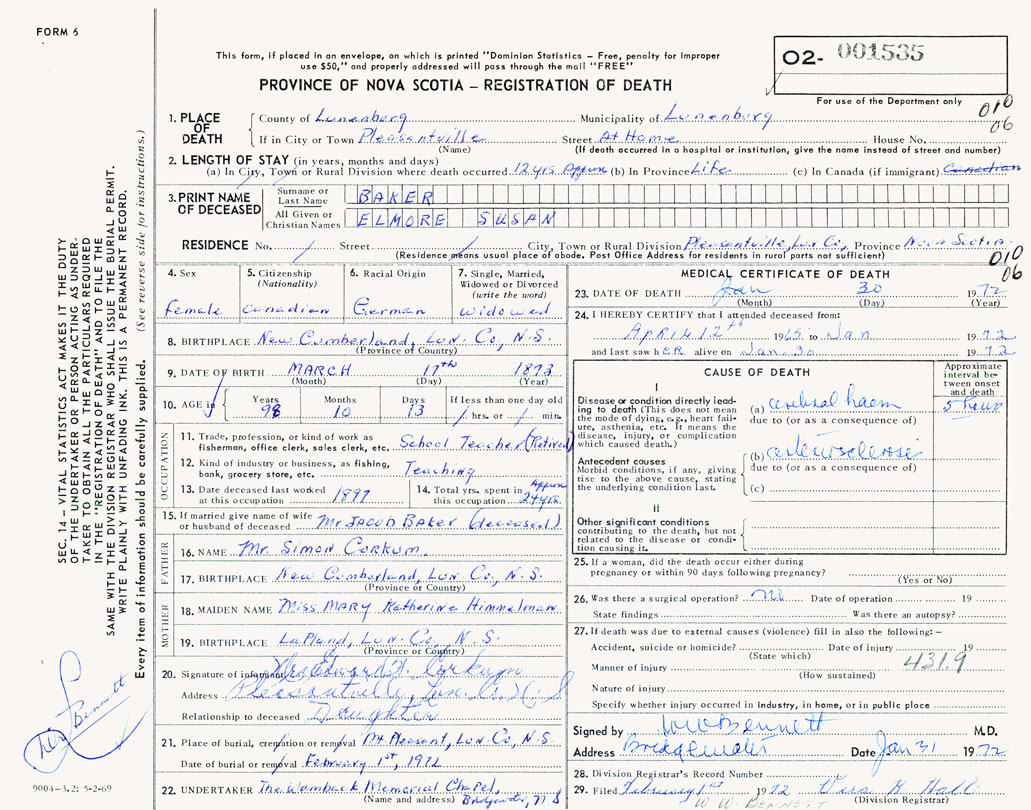 FORM 6
This form, if placed in an envelope, on which is printed "Dominion Statistics – Free, penalty for improper
use $50," and properly addressed will pass through the mail "FREE"
PROVINCE OF NOVA SCOTIA – REGISTRATION OF DEATH
02- 001535
For use of the Department only
010
06
1. PLACE OF DEATH
County of Lunenburg Municipality of Lunenburg
If in City or Town Pleasantville Street At Home House No.
(Name) (If death occurred in a hospital or institution, give the name instead of street and number)
2. LENGTH OF STAY (in years, months and days)
(a) In City, Town or Rural Division where death occurred 12 yrs. Approx (b) In Province Life (c) In Canada (if immigrant) Canadian
3. PRINT NAME OF DECEASED
Surname or Last Name BAKER
All Given or Christian Names ELMORE SUSAN
RESIDENCE No. / Street / City, Town or Rural Division Pleasantville, Lun Co, Province Nova Scotia
(Residence means usual place of abode. Post Office Address for residents in rural parts not sufficient)
010
06
4. Sex
female
5. Citizenship
(Nationality)
Canadian
6. Racial Origin
German
7. Single, Married,
Widowed or Divorced
(write the word)
Widowed
8. BIRTHPLACE New Cumberland, Lun. Co, N.S.
(Province of Country)
9. DATE OF BIRTH MARCH 17th 1873
(Month) (Day) (Year)
10. AGE in Years 98 Months 10 Days 13 If less than one day old / hrs. or / min.
OCCUPATION
11. Trade, profession, or kind of work as
fisherman, office clerk, sales clerk, etc. School Teacher (Retired)
12. Kind of industry or business, as fishing,
bank, grocery store, etc. Teaching
13. Date deceased last worked
at this occupation 1897
14. Total yrs. spent in
this occupation Approx 2 4 yrs.
15. If married give name of wife
or husband of deceased Mr JACOB BAKER (deceased)
FATHER
16. NAME Mr. Simon Corkum
17. BIRTHPLACE New Cumberland, Lun. Co., N.S.
(Province or Country)
MOTHER
18. MAIDEN NAME Miss MARY Katherine Himmelman
19. BIRTHPLACE LaPland, Lun. Co, N.S.
(Province or Country)
20. Signature of informant Edward Corkum
Address Pleasantville, Lun. Co N S
Relationship to deceased Daughter
21. Place of burial, cremation or removal Mt Pleasant, Lun Co, N.S
Date of burial or removal February 1st, 1972
22. UNDERTAKER The Womback Memorial Chapel,
(Name and address) N S
MEDICAL CERTIFICATE OF DEATH
23. DATE OF DEATH Jan 30 1972
(Month) (Day) (Year)
24. I HEREBY CERTIFY that I attended deceased from:
April 12th 1965 to Jan 1972
and last saw hER alive on Jan. 30 1972
CAUSE OF DEATH
Approximate
interval be-
tween onset
and death
I
Disease or condition directly lead-
ing to death (This does not mean
the mode of dying, e.g., heart fail-
ure, asthenia, etc. It means the
disease, injury, or complication
which caused death.)
(a) cerebral haem 5 hour
due to (or as a consequence of)
Antecedent causes
Morbid conditions, if any, giving
rise to the above cause, stating
the underlying condition last.
(b) arteriosclerosis
due to (or as a consequence of)
(c)
II
Other significant conditions
contributing to the death, but not
related to the disease or condi-
tion causing it.
25. If a woman, did the death occur either during
pregnancy or within 90 days following pregnancy?
(Yes or No)
26. Was there a surgical operation? no Date of operation 19
State findings Was there an autopsy?
27. If death was due to external causes (violence) fill in also the following: –
Accident, suicide or homicide? Date of injury 19
(State which)
4319
Manner of injury
(How sustained)
Nature of injury
Specify whether injury occurred in industry, in home, or in public place
Signed by W W Bennett M.D.
Address Bridgewater Date Jan 31 1972
28. Division Registrar's Record Number
29. Filed February 1st 1972 K. Hall
W W. BENNETT (Division Registrar)
SEC. 14 – VITAL STATISTICS ACT MAKES IT THE DUTY
OF THE UNDERTAKER OR PERSON ACTING AS UNDER-
TAKER TO OBTAIN ALL THE PARTICULARS REQUIRED
IN THE "REGISTRATION OF DEATH" AND TO FILE THE
SAME WITH THE DIVISION REGISTRAR WHO SHALL ISSUE THE BURIAL PERMIT.
WRITE PLAINLY WITH UNFADING INK. THIS IS A PERMANENT RECORD.
Every item of information should be carefully supplied. (See reverse side for instructions.)
Bennett
9004-3.2: 5-2-69